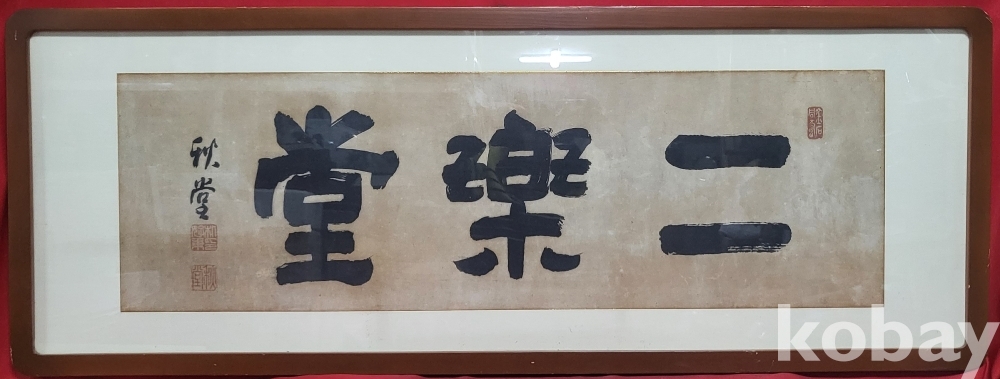 二樂堂
秋堂
kobay